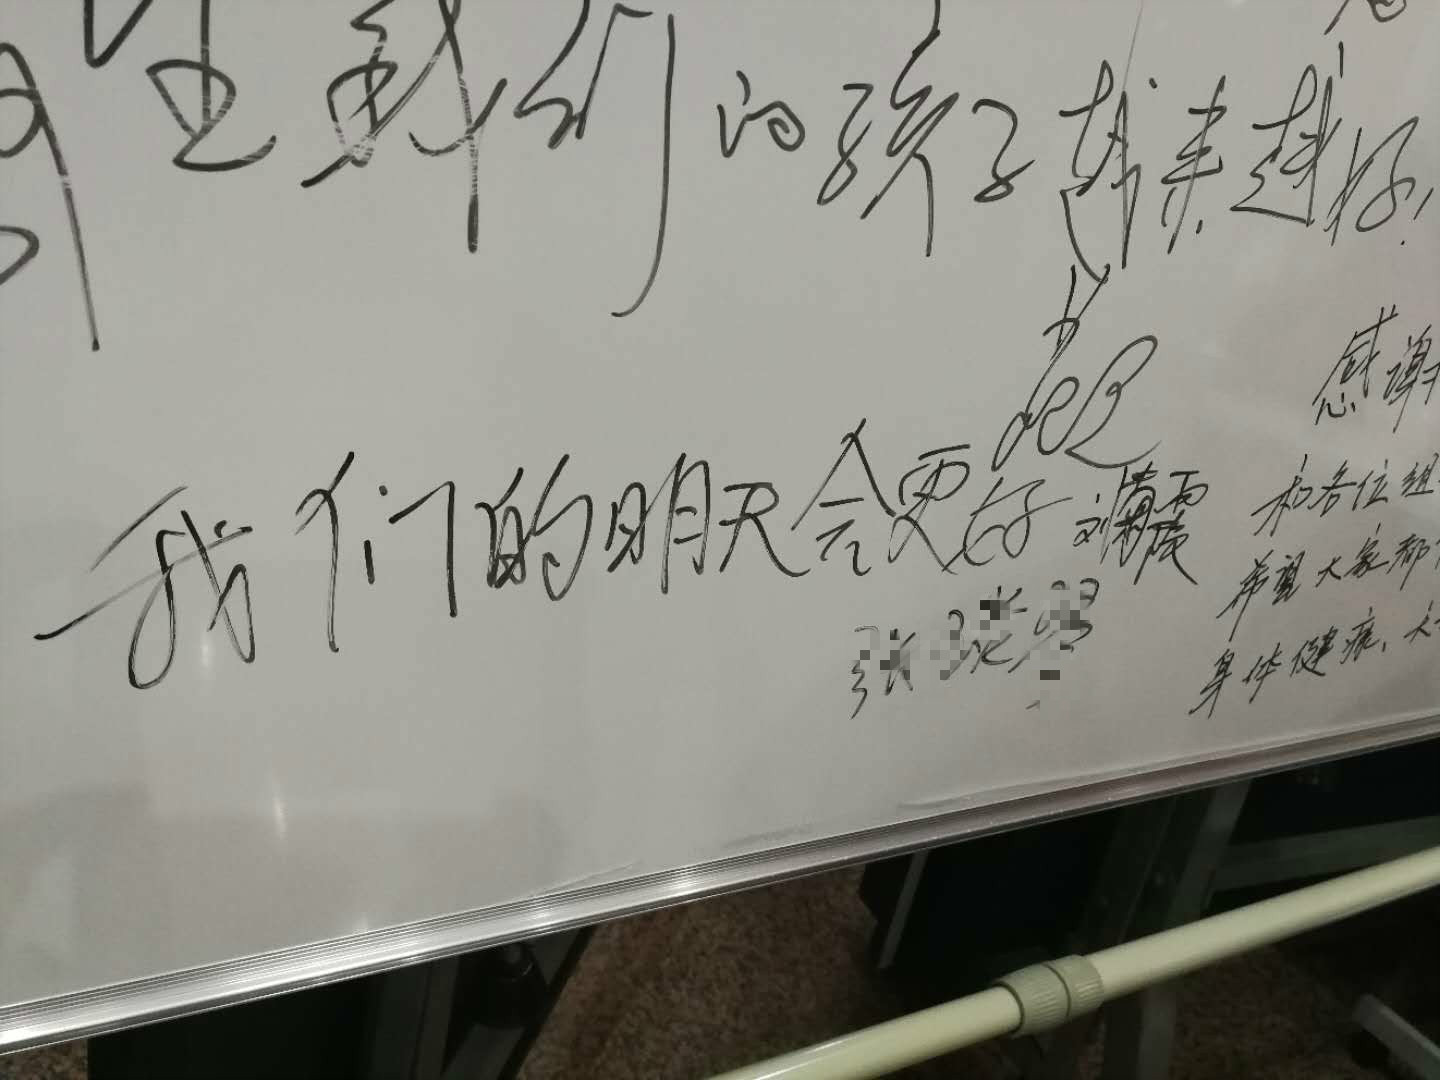 我们的孩子越来越好!
我们的明天会更好
感谢
和各位组
希望大家都
身体健康、